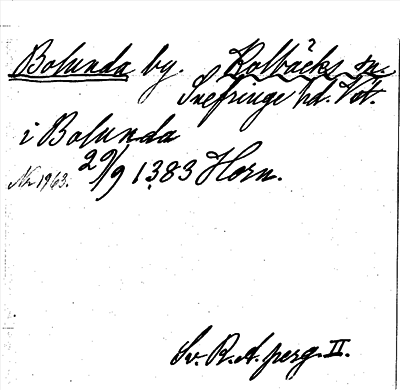 Bolunda by. Kolbäcks sn.
Snefringe hd. Vstm.
i Bolunda
Nr 1963. 29/9 1383 Horn.
Sv. R. A. perg. II.